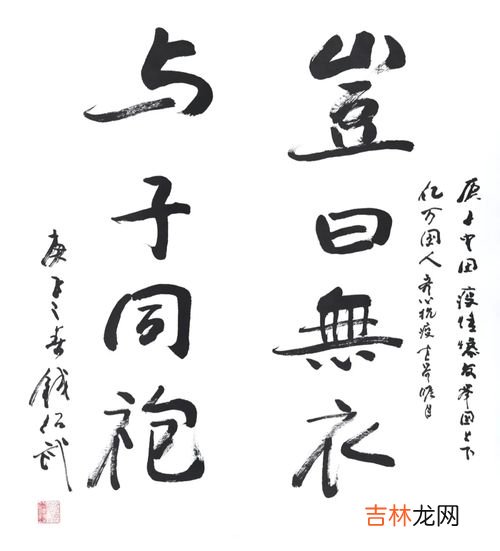 庚子中国疫情爆发举国上下
亿万国人齐心抗疫
豈曰無衣
与子同袍
庚子之春钱绍武
吉林龙网